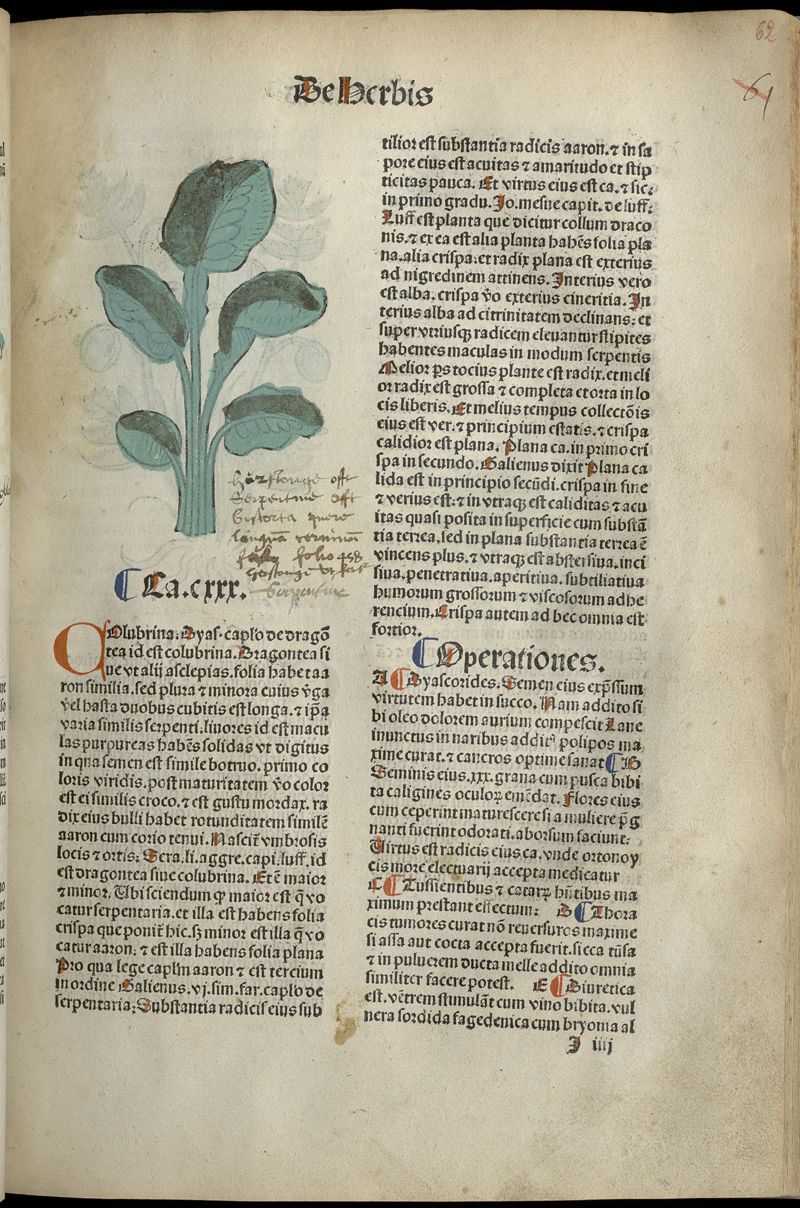 62
61
De Herbis
hörstonge oft
Serpentine oft
bistorta quere
folio 458
Ca.cxxx.
COlubrina. Dyas. caplo de dragõ
tea id est colubrina. Dragontea si
ue vt alij asclepias. folia habet aa
ron similia. sed plura ⁊ minora cuius v̄ga
vel hasta duobus cubitis est longa. ⁊ ip̄a
varia similis serpenti. liuores id est macu
las purpureas habẽs solidas vt digitus
in qua semen est simile botruo. primo co
loris viridis. post maturitatem v̊o color
est ei similis croco. ⁊ est gustu mordax. ra
dix eius bulli habet rotunditatem similẽ
aaron cum corio tenui. Nascit᷑ vmbrosis
locis ⁊ ortis. Sera. li. aggre. capi. luff. id
est dragontea siue colubrina. Et ẽ maior
⁊ minor. Ubi sciendum ꝙ maior est q̃ vo
catur serpentaria. et illa est habens folia
crispa que ponit᷑ hic. sꝫ minor est illa q̃ vo
catur aaron. ⁊ est illa habens folia plana
Pro qua lege caplm̄ aaron ⁊ est tercium
in ordine Galienus. vj. sim. far. caplo de
serpentaria. Substantia radicis eius sub
tilior est substantia radicis aaron. ⁊ in sa
pore eius est acuitas ⁊ amaritudo et stip
ticitas pauca. Et virtus eius est ca. ⁊ sic.
in primo gradu. Jo. mesue capit. de luff.
Luff est planta que dicitur collum draco
nis. ⁊ ex ea est alia planta habẽs folia pla
na. alia crispa. et radix plana est exterius
ad nigredinem attinens. Interius vero
est alba. crispa v̊o exterius cineritia. In
terius alba ad citrinitatem declinans. et
super vtriusqꝫ radicem eleuantur stipites
habentes maculas in modum serpentis
Melior ps tocius plante est radix. et meli
or radix est grossa ⁊ completa et orta in lo
cis liberis. Et melius tempus collectõis
eius est ver. ⁊ principium estatis. ⁊ crispa
calidior est plana. Plana ca. in primo cri
spa in secundo. Galienus dixit Plana ca
lida est in principio secũdi. crispa in fine
⁊ verius est. ⁊ in vtraqꝫ est caliditas ⁊ acu
itas quasi posita in superficie cum substã
tia terrea. sed in plana substantia terrea ẽ
vincens plus. ⁊ vtraqꝫ est abstersiua. inci
siua. penetratiua. aperitiua. subtiliatiua
humorum grossorum ⁊ viscosorum adhe
rencium. Crispa autem ad hec omnia est
fortior.
Operationes.
A Dyascorides. Semen eius exp̃ssum
virtutem habet in succo. Nam addito si
bi oleo dolorem aurium compescit Lane
inunctus in naribus addit᷒ polipos ma
xime curat. ⁊ cancros optime sanat B
Seminis eius .xxx. grana cum pusca bibi
ta caligines oculoꝝ emẽdat. Flores eius
cum ceperint maturescere si a muliere p̃g
nanti fuerint odorati. aborsum faciunt.
Uirtus est radicis eius ca. vnde ortonoy
cis more electuarij accepta medicatur
C Tussientibus ⁊ catarꝝ hñtibus ma
ximum prestant effectum. D Thora
cis tumores curat nõ reuersuros maxime
si assa aut cocta accepta fuerit. sicca tũsa
⁊ in puluerem ducta melle addito omnia
similiter facere potest. E Diuretica
est. vẽtrem stimulãt cum vino bibita. vul
nera sordida fagedenica cum bryonia al
J iiij